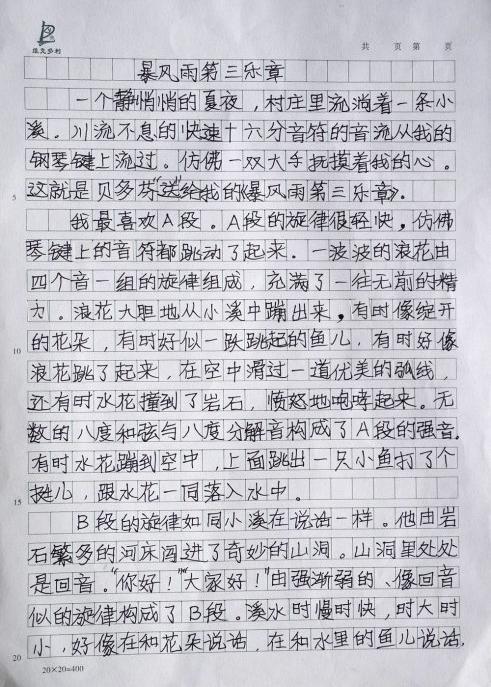 维克多利
共 页 第 页
暴风雨第三乐章
一个静悄悄的夏夜，村庄里流淌着一条小
溪。川流不息的快速十六分音符的音流从我的
钢琴键上流过。仿佛一双大手抚摸着我的心。
5
这就是贝多芬“送”给我的《暴风雨第三乐章》.
我最喜欢A段。A段的旋律很轻快，仿佛
琴键上的音符都跳动了起来。一波波的浪花由
四个音一组的旋律组成，充满了一往无前的精
力。浪花大胆地从小溪中蹦出来，有时像绽开
10
的花朵，有时好似一跃跳起的鱼儿，有时好像
浪花跳了起来，在空中滑过一道优美的弧线，
还有时水花撞到了岩石，愤怒地咆哮起来。无
数的八度和弦与八度分解音构成了A段的强音.
有时水花蹦到空中，上面跳出一只小鱼打了个
15
挺儿，跟水花一同落入水中。
B段的旋律如同小溪在说话一样。他由岩
石繁多的河床闯进了奇妙的山洞。山洞里处处
是回音。“你好！”“大家好！”由强渐弱的、像回音
似的旋律构成了B段。溪水时慢时快，时大时
小，好像在和花朵说话，在和水里的鱼儿说话，
20
20×20=400